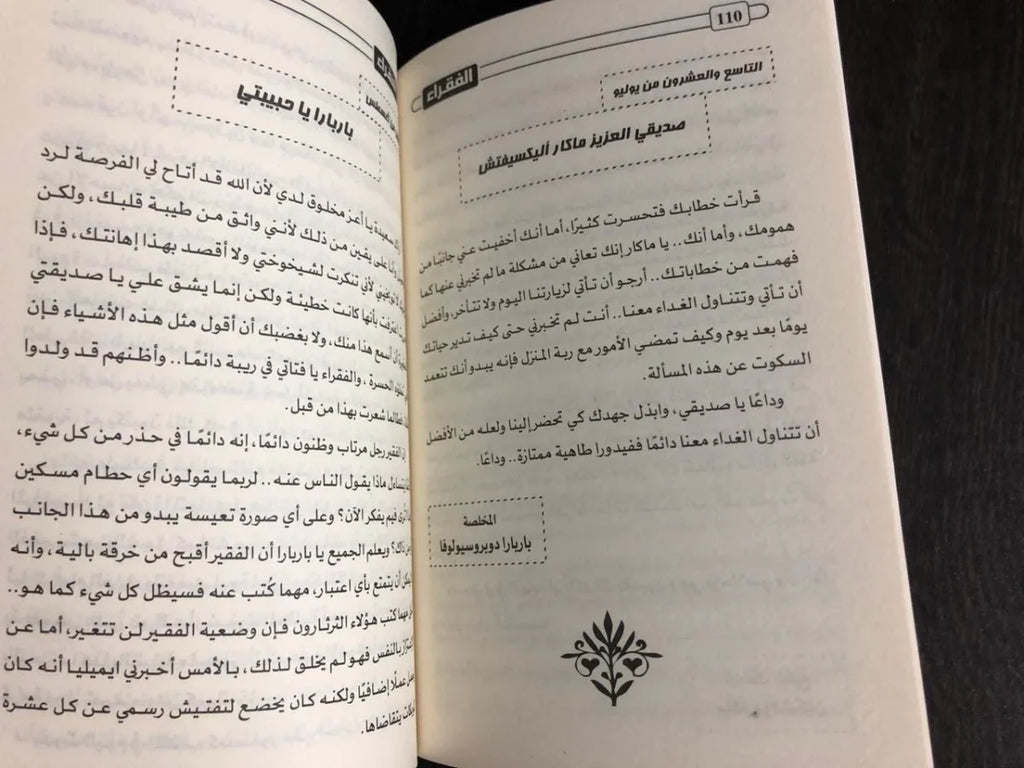 110
الفقراء
التاسع والعشرون من يوليو
صديقي العزيز ماكار أليكسيفتش
قرأت خطابك فتحسرت كثيرًا، أما أنك أخفيت عني جانبًا من
همومك، وأما أنك.. يا ماكار إنك تعاني من مشكلة ما لم تخبرني عنها كما
فهمت من خطاباتك.. أرجو أن تأتي لزيارتنا اليوم ولا تتأخر، وأفضل
أن تأتي وتتناول الغداء معنا.. أنت لم تخبرني حتى كيف تدير حياتك
يومًا بعد يوم وكيف تمضي الأمور مع ربة المنزل فإنه يبدو أنك تتعمد
السكوت عن هذه المسألة.
وداعًا يا صديقي، وابذل جهدك كي تحضر إلينا ولعله من الأفضل
أن تتناول الغداء معنا دائمًا ففيدورا طاهية ممتازة.. وداعًا.
المخلصة
باربارا دوبروسيولوفا
باربارا يا حبيبتي
سعيدة يا أعز مخلوق لدي لأن الله قد أتاح لي الفرصة لرد
على يقين من ذلك لأنني واثق من طيبة قلبك، ولكن
لأني تنكرت لشيخوختي ولا أقصد بهذا إهانتك، فإذا
اعترفت بأنها كانت خطيئة ولكن إنما يشق علي يا صديقتي
أن أسمع هذا منك، ولا بغضبك أن أقول مثل هذه الأشياء فإن
الحسرة، والفقراء يا فتاتي في ريبة دائمًا.. وأظنهم قد ولدوا
شعرت بهذا من قبل.
الفقير رجل مرتاب وظنون دائمًا، إنه دائمًا في حذر من كل شيء،
ماذا يقول الناس عنه.. لربما يقولون أي حطام مسكين
فيم يفكر الآن؟ وعلى أي صورة تعيسة يبدو من هذا الجانب
ويعلم الجميع يا باربارا أن الفقير أقبح من خرقة بالية، وأنه
أن يتمتع بأي اعتبار، مهما كُتب عنه فسيظل كل شيء كما هو..
مهما كتب هؤلاء الثرثارون فإن وضعية الفقير لن تتغير، أما عن
بالنفس فهو لم يخلق لذلك، بالأمس أخبرني ايميليا أنه كان
عملًا إضافيًا ولكنه كان يخضع لتفتيش رسمي عن كل عشرة
يتقاضاها.